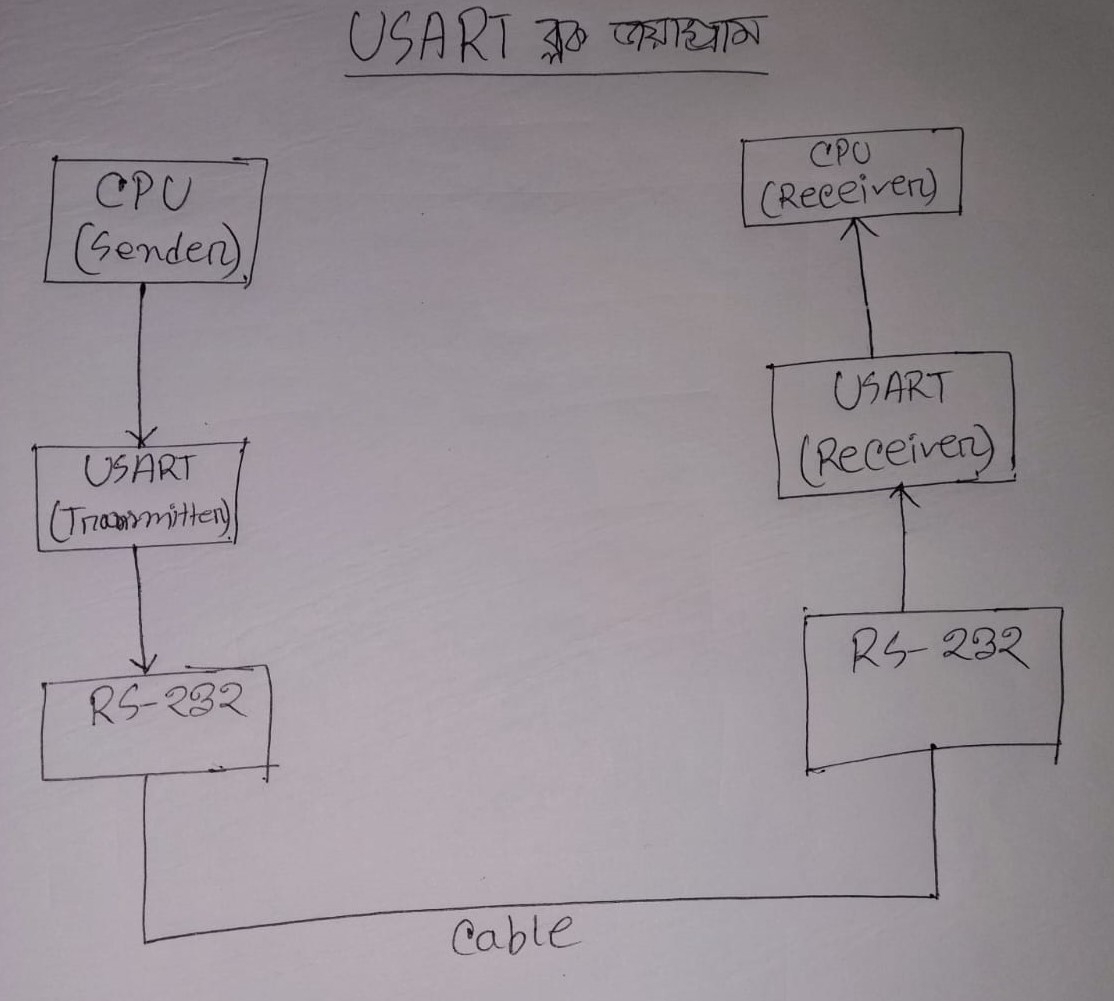 USART ব্লক ডায়াগ্রাম
CPU
(Sender)
USART
(Transmitter)
RS-232
CPU
(Receiver)
USART
(Receiver)
RS-232
Cable